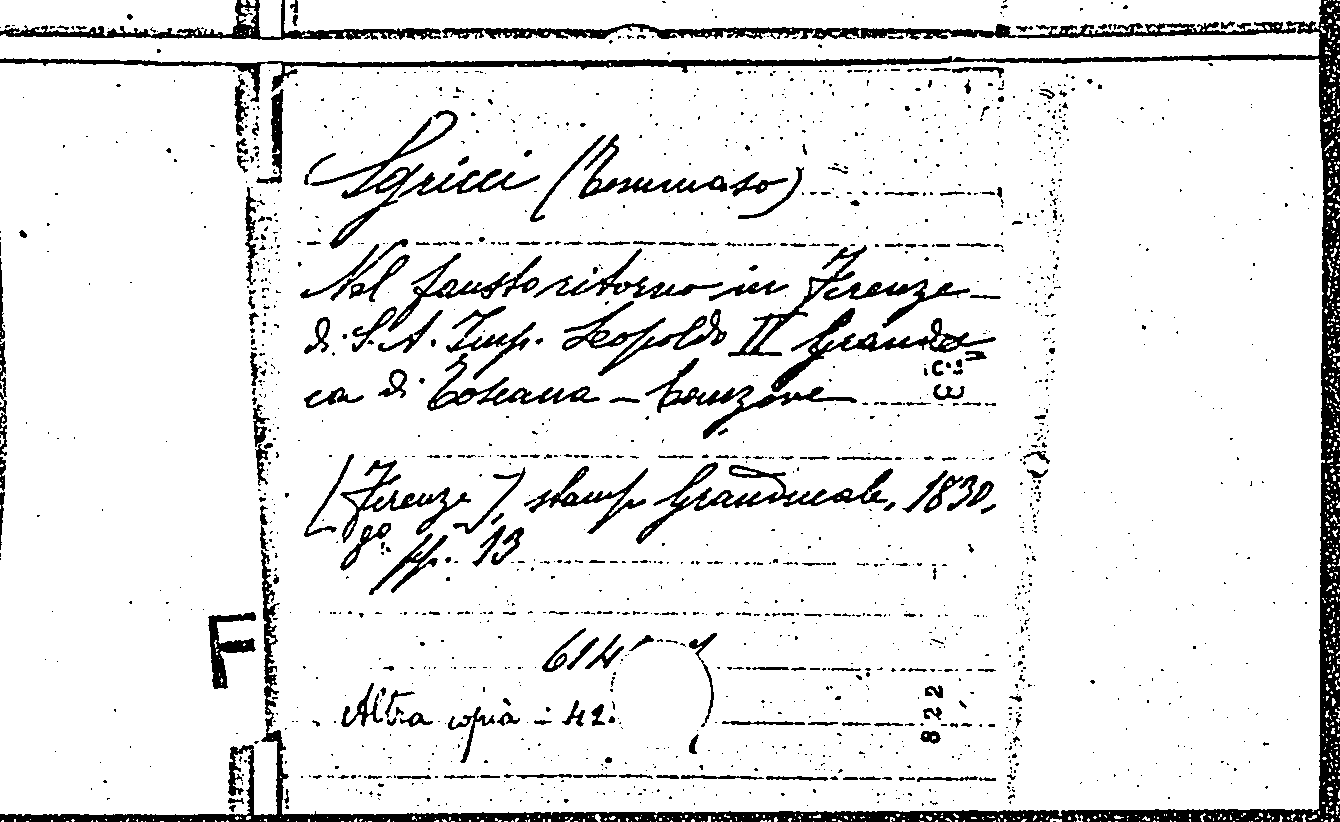 Sgricci (Tommaso)
Nel fausto ritorno in Firenze
di S. A. Imp. Leopoldo II Grandu-
ca di Toscana – Canzone
[Firenze], stamp. Granducale, 1830,
8º. pp. 13
614
Altra copia – 42.
822